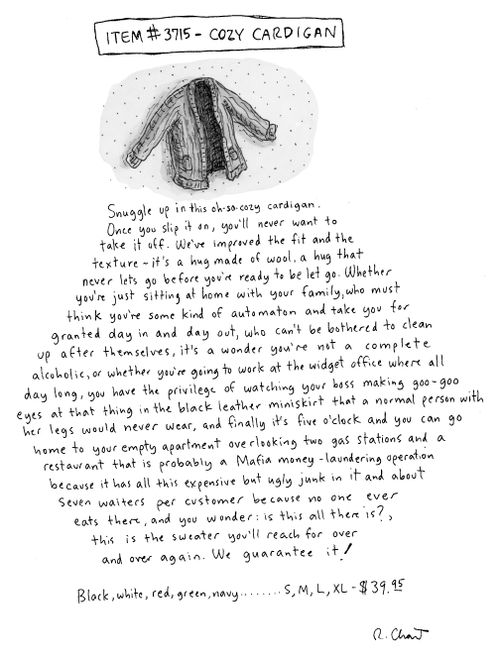 ITEM # 3715 - COZY CARDIGAN
Snuggle up in this oh-so-cozy cardigan.
Once you slip it on, you'll never want to
take it off. We've improved the fit and the
texture - it's a hug made of wool, a hug that
never lets go before you're ready to be let go. Whether
you're just sitting at home with your family, who must
think you're some kind of automaton and take you for
granted day in and day out, who can't be bothered to clean
up after themselves, it's a wonder you're not a complete
alcoholic, or whether you're going to work at the widget office where all
day long, you have the privilege of watching your boss making goo-goo
eyes at that thing in the black leather miniskirt that a normal person with
her legs would never wear, and finally it's five o'clock and you can go
home to your empty apartment overlooking two gas stations and a
restaurant that is probably a Mafia money-laundering operation
because it has all this expensive but ugly junk in it and about
seven waiters per customer because no one ever
eats there, and you wonder: is this all there is?,
this is the sweater you'll reach for over
and over again. We guarantee it!
Black, white, red, green, navy........ S, M, L, XL - $39.95
R. Chast